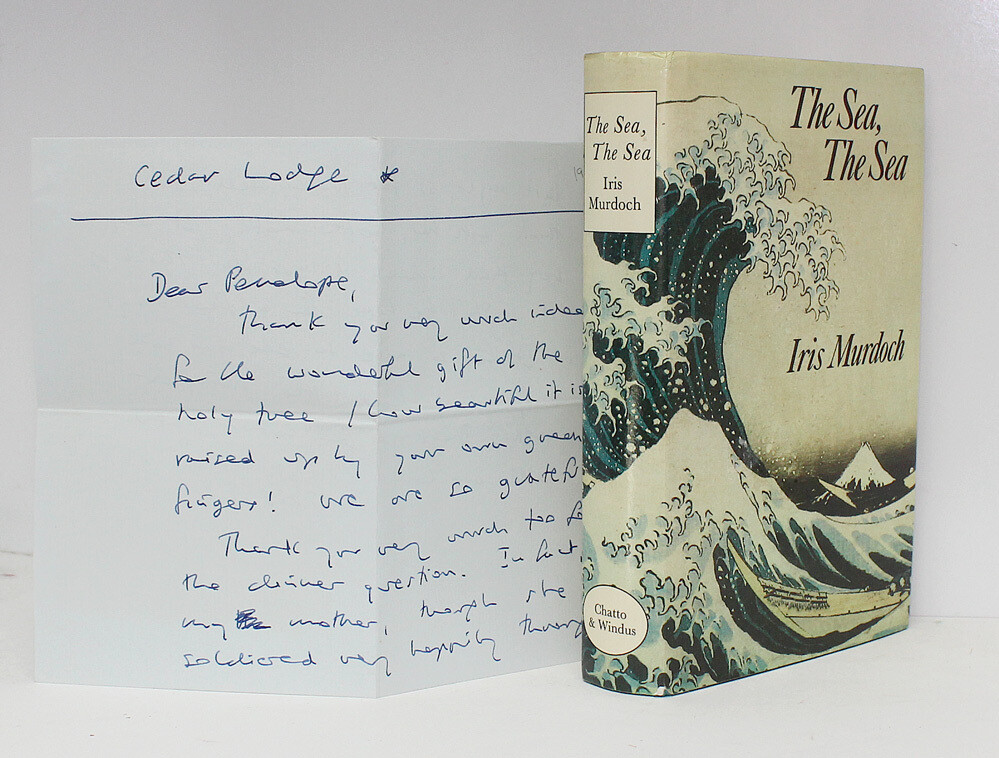 Cedar Lodge
19
Dear Penelope,
Thank you very much indee
for the wonderful gift of the
holy tree / how beautiful it is
raised up by your own green
fingers! we are so gratef
Thank you very much too fo
the dinner question. In fact,
my mother, though she
soldiered very happily throug
The Sea,
The Sea
Iris
Murdoch
Chatto
& Windus
The Sea,
The Sea
Iris Murdoch